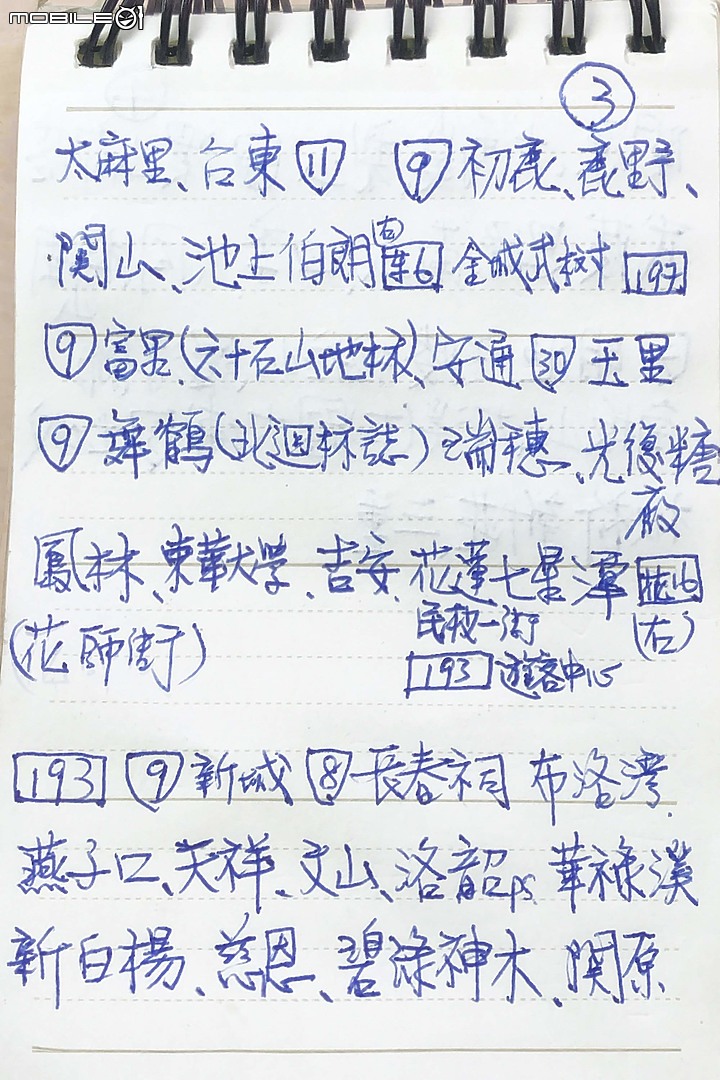 MOBILE01
③
太麻里、台東 11 9 初鹿、鹿野、
関山、池上伯朗(右)東6 金城武樹 197
9 富里(六十石山地標)、安通 30 玉里
9 舞鶴(北迴标誌)瑞穗、光復糖
廠
鳳林、東華大學、吉安、花蓮七星潭
民政一街 (右)
(花師街)
193 遊客中心
193 9 新城 8 長春祠 布洛灣、
燕子口、天祥、文山、洛韶ps 華祿溪
新白楊、慈恩、碧淥神木、関原